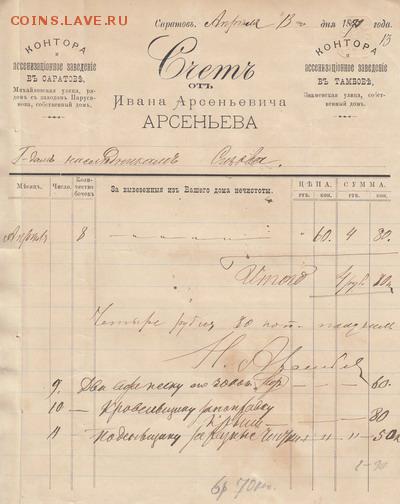 COINS.LAVE.RU
Саратовъ, Апрѣля 13 дня 189 года.
13
КОНТОРА
и
ассенизаціонное заведеніе
ВЪ САРАТОВѢ,
Михайловская улица, ря-
домъ съ заводомъ Паруси-
нова, собственный домъ.
Счетъ
отъ
Ивана Арсеньевича
АРСЕНЬЕВА
КОНТОРА
и
ассенизаціонное заведеніе
ВЪ ТАМБОВѢ,
Знаменская улица, собст-
венный домъ.
Г-дамъ наслѣдникамъ
Мѣсяцъ. Число. Коли-чество бочекъ За вывезенныя изъ Вашего дома нечистоты. ЦѢНА. руб. коп. СУММА. руб. коп.
Апрѣль 8 " 60. 4 80.
Итого 4 руб. 80 к
Четыре рубля 80 коп. получилъ
И. Арсеньевъ
9. Два 60.
10 — Кровельщику за поправку
крыши 80
11 за разные " " 50к
6р 70к.